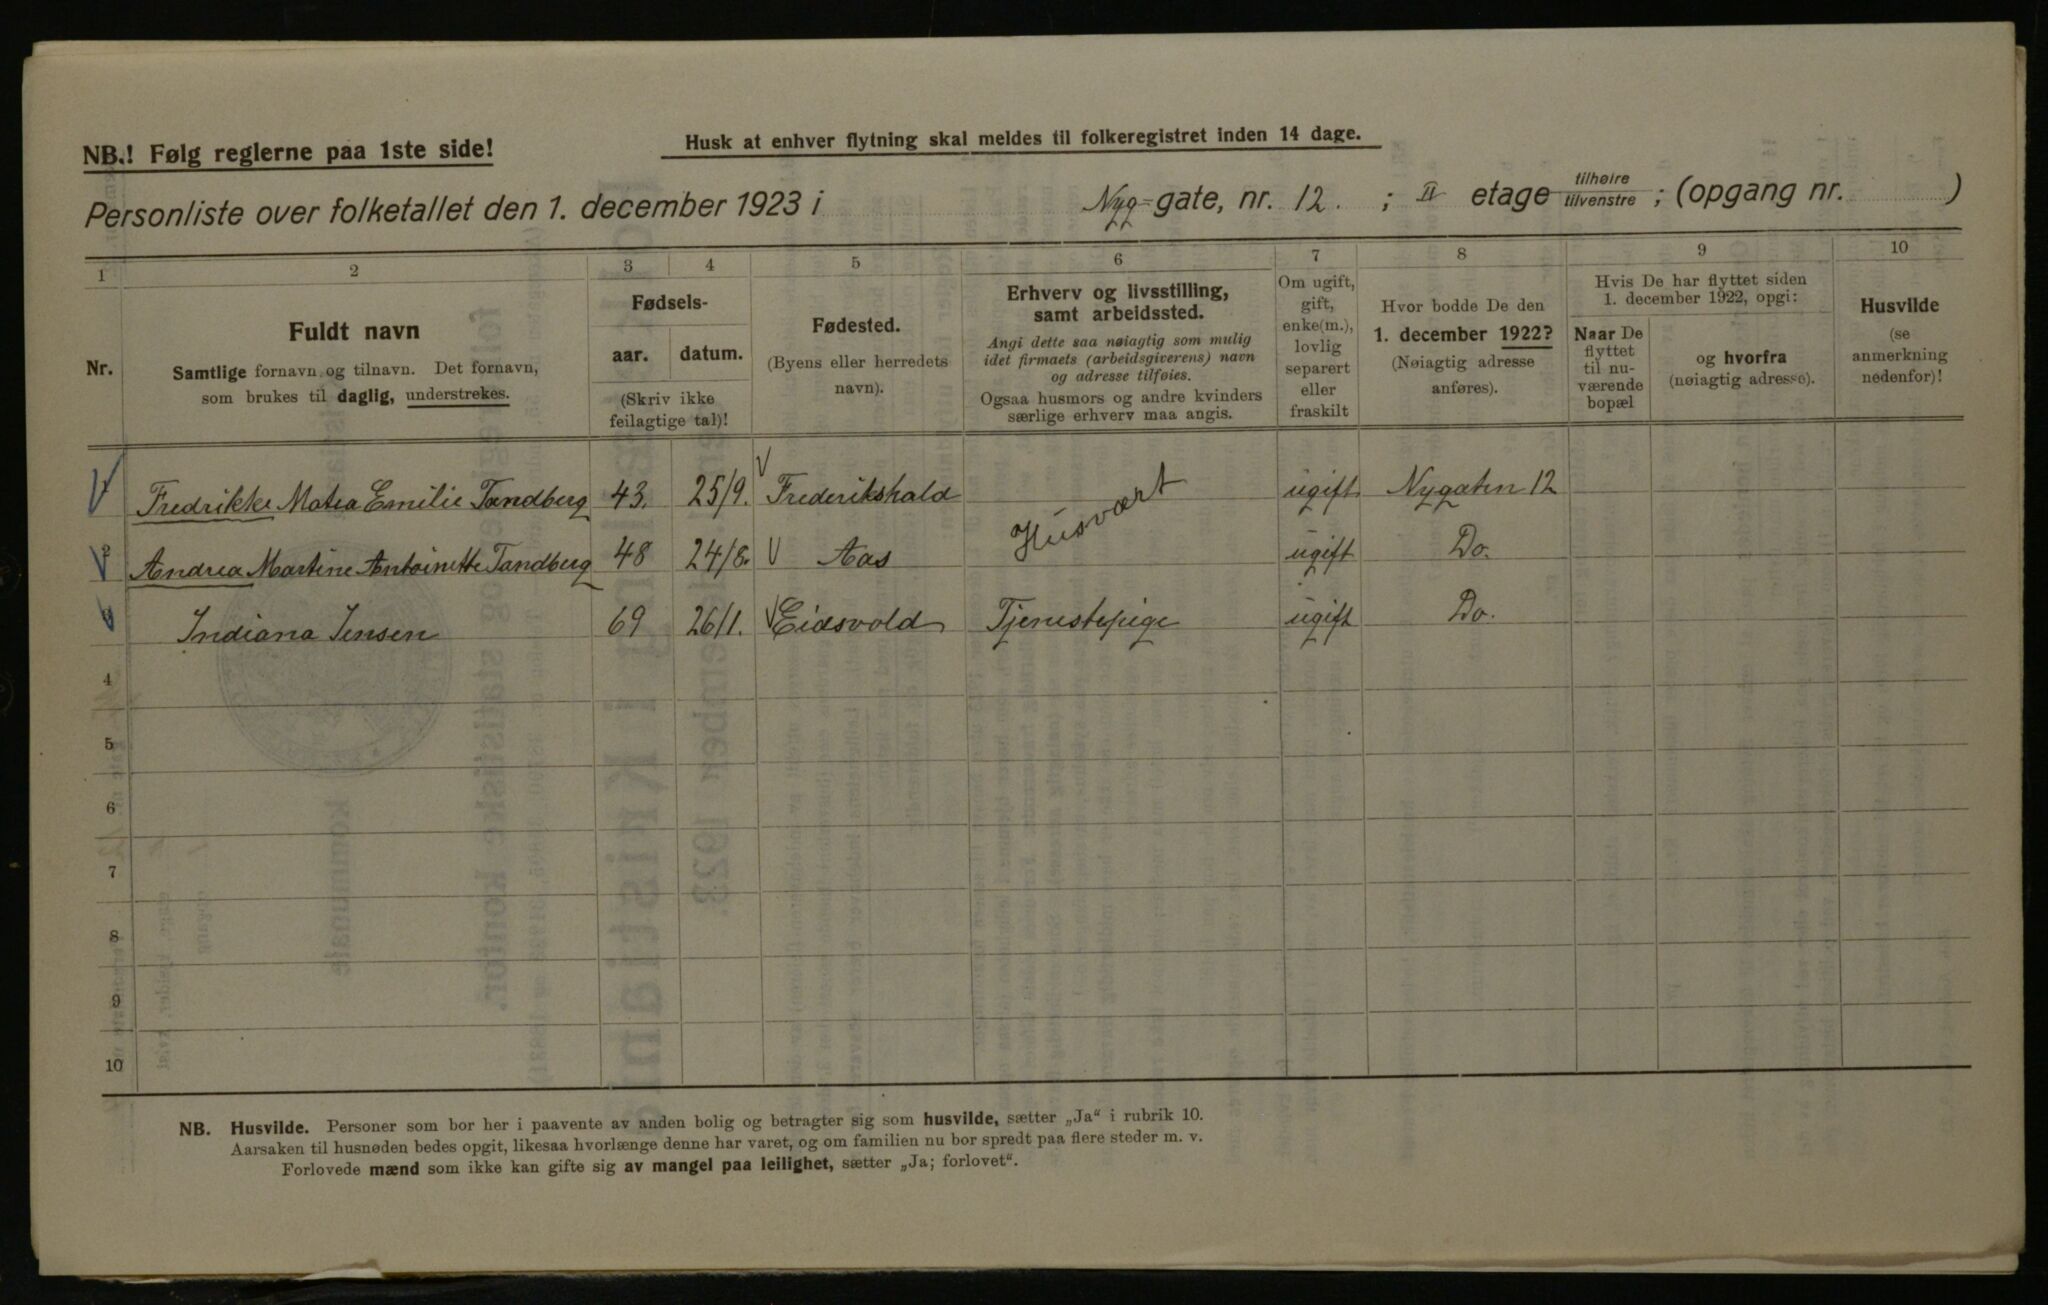 NB.! Følg reglerne paa 1ste side!
Husk at enhver flytning skal meldes til folkeregistret inden 14 dage.
Personliste over folketallet den 1. december 1923 i Nyg-gate, nr. 12. ; II etage tilhøire/tilvenstre ; (opgang nr. )
1 2 3 4 5 6 7 8 9 10
Nr.
Fuldt navn
Samtlige fornavn og tilnavn. Det fornavn,
som brukes til daglig, understrekes.
Fødsels-
aar. datum.
(Skriv ikke
feilagtige tal)!
Fødested.
(Byens eller herredets
navn).
Erhverv og livsstilling,
samt arbeidssted.
Angi dette saa nøiagtig som mulig
idet firmaets (arbeidsgiverens) navn
og adresse tilføies.
Ogsaa husmors og andre kvinders
særlige erhverv maa angis.
Om ugift,
gift,
enke(m.),
lovlig
separert
eller
fraskilt
Hvor bodde De den
1. december 1922?
(Nøiagtig adresse
anføres).
Hvis De har flyttet siden
1. december 1922, opgi:
Naar De
flyttet
til nu-
værende
bopæl
og hvorfra
(nøiagtig adresse).
Husvilde
(se
anmerkning
nedenfor)!
1 Fredrikke Matea Emilie Tandberg 43. 25/9. Frederikshald Husvært ugift Nygaten 12
2 Andrea Martine Antoinette Tandberg 48 24/8. Aas ugift Do.
3 Indiana Jensen 69 26/1. Eidsvold Tjenestepige ugift Do.
4
5
6
7
8
9
10
NB. Husvilde. Personer som bor her i paavente av anden bolig og betragter sig som husvilde, sætter „Ja“ i rubrik 10.
Aarsaken til husnøden bedes opgit, likesaa hvorlænge denne har varet, og om familien nu bor spredt paa flere steder m. v.
Forlovede mænd som ikke kan gifte sig av mangel paa leilighet, sætter „Ja; forlovet“.